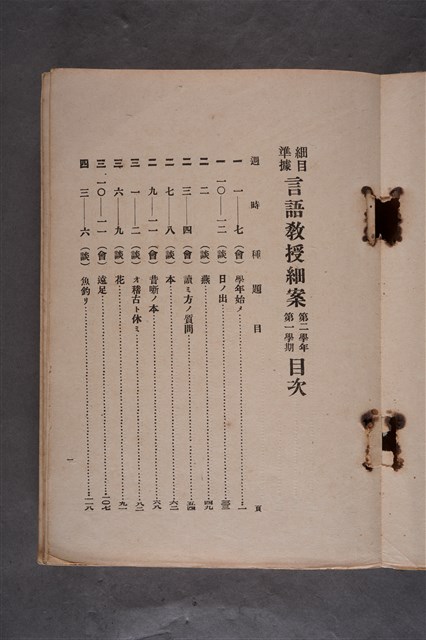 細目準據 言語敎授細案 第二學年第一學期 目次
週 時 種 題目 頁
一 一——七 (會) 學年始メ 一
一 一〇——一二 (談) 日ノ出
二 二 (談) 燕 四九
二 三——四 (會) 讀ミ方ノ質問 五四
二 七——八 (談) 本 六二
二 九——一一 (會) 昔噺ノ本 六八
三 一——二 (談) オ稽古ト休ミ 八二
三 六——九 (談) 花 九一
三 一〇——一一 (會) 遠足 一〇七
四 三——六 (談) 魚釣リ 一一八
一